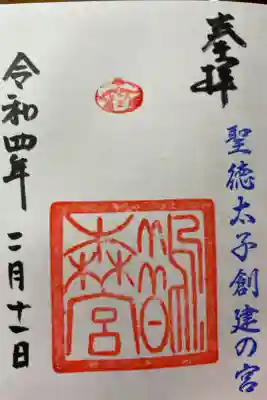 奉拝
聖徳太子創建の宮
鵲
森宮
令和四年 二月十一日